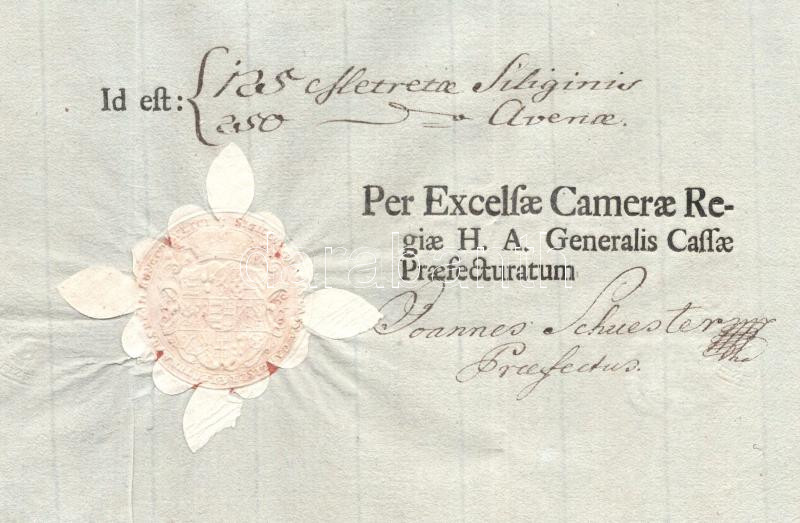 Id eſt: { 125 Metretæ Siliginis
250 Avenæ.
Per Excelſæ Cameræ Re-
giæ H. A. Generalis Caſſæ
Præfecturatum
Joannes Schuester
Præfectus.